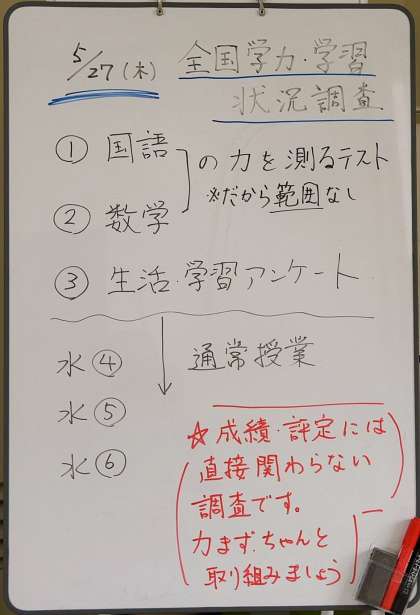 5/27(木) 全国学力・学習
状況調査
① 国語
の力を測るテスト
※だから範囲なし
② 数学
③ 生活・学習アンケート
水④ 通常授業
水⑤
水⑥
☆成績・評定には
直接関わらない
調査です。
力まず、ちゃんと
取り組みましょう